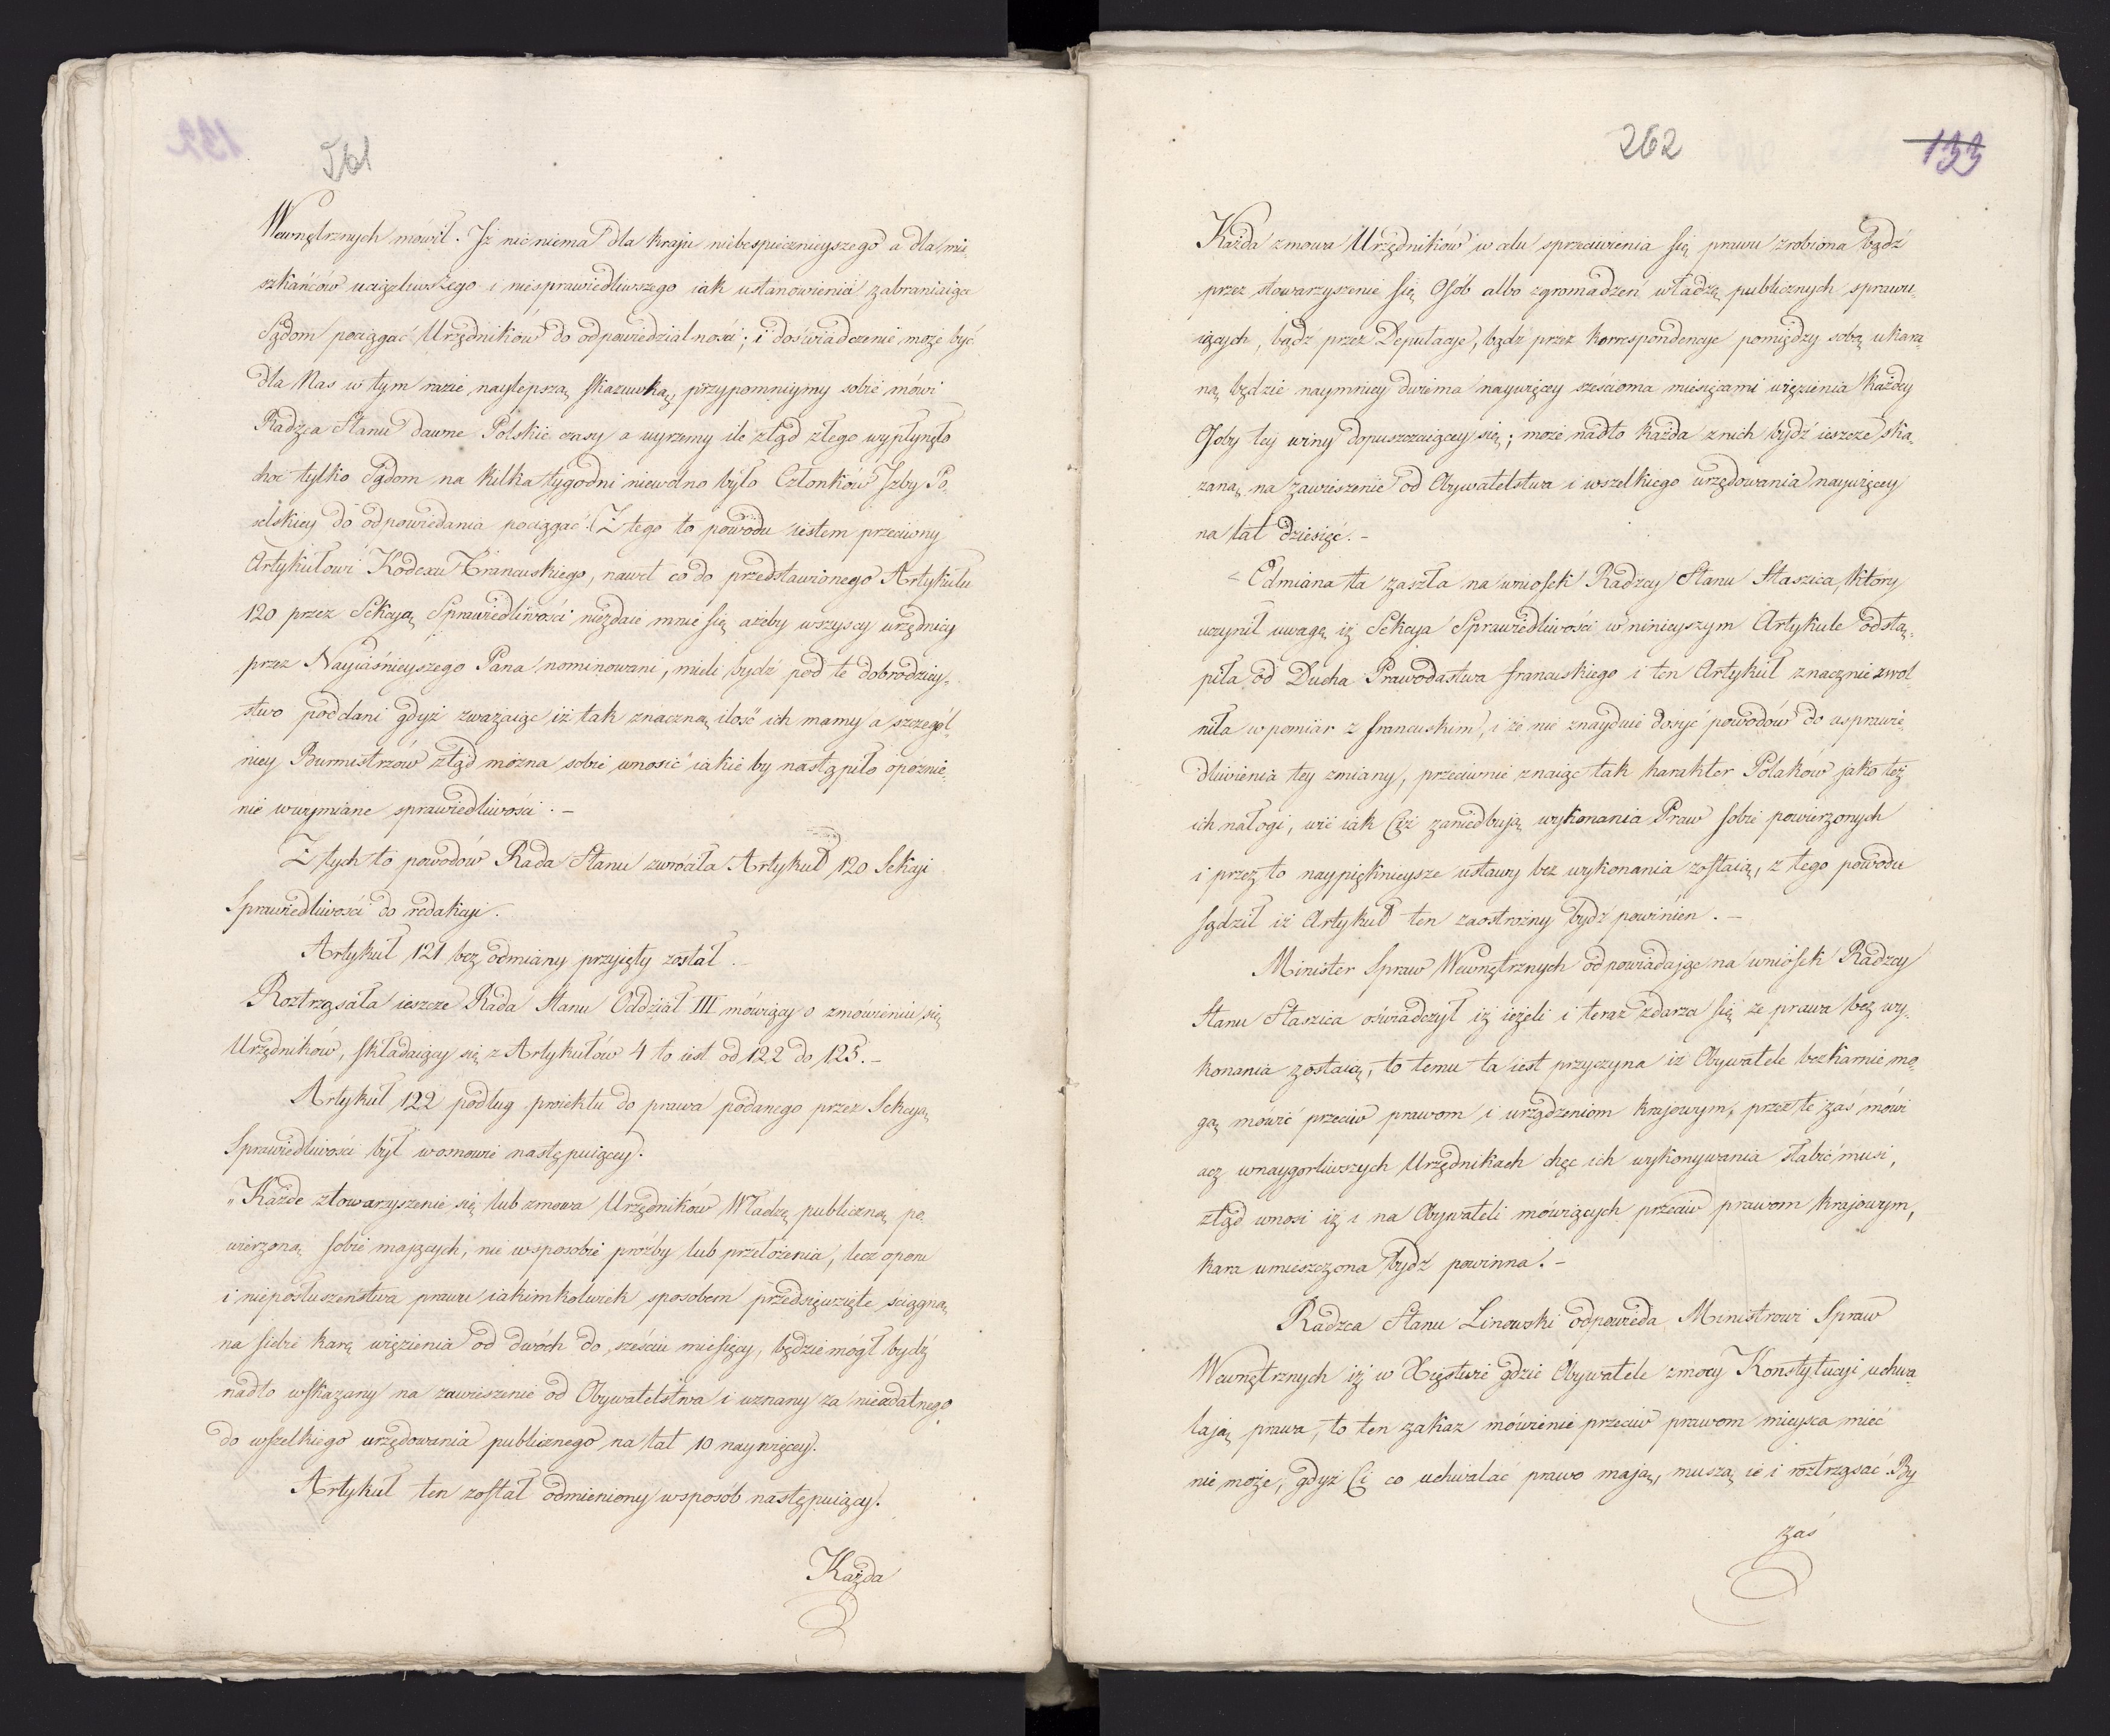 261
Wewnętrznych mówił. Iż nic niema dla kraju niebespiecznieyszego a dla mie„
szkańców uciążliwszego i niesprawiedliwszego iak ustanowienia zabraniaiące
Sądom pociągać Urzędników do odpowiedzialności; i doświadczenie może być
dla Nas w tym razie naylepszą skazuwką, przypomniymy sobie mówi
Radzca Stanu dawne Polskie czasy a uyrzemy ile ztąd złego wypłynęło
choć tylko Sądom na kilka tygodni niewolno było Członków Izby Po„
selskiey do odpowiedania pociągać. Z tego to powodu iestem przeciwny
Artykułowi Kodexu Francuskiego, nawet co do przedstawionego Artykułu
120 przez Sekcyą Sprawiedliwości niezdaie mnie się ażeby wszyscy urzędnicy
przez Nayiaśnieyszego Pana nominowani, mieli bydź pod te dobrodziey„
stwo poddani gdyż zważaiąc iż tak znaczną ilość ich mamy a szczegól„
niey Burmistrzów ztąd można sobie wnosić iakie by nastąpiło opoznie„
nie wwymiane sprawiedliwości. –
Z tych to powodów Rada Stanu zwróciła Artykuł 120 Sekcyi
Sprawiedliwości do redakcyi.
Artykuł 121 bez odmiany przyięty został. –
Roztrząsała ieszcze Rada Stanu Oddział III mówiący o zmówieniu się
Urzędników, składaiący się z Artykułów 4 to iest od 122 do 125. –
Artykuł 122 podług proiektu do prawa podanego przez Sekcyą
Sprawiedliwości był wosnowie następuiącey.
„Każde ztowarzyszenie się lub zmowa Urzędników Władzę publiczną po„
wierzoną sobie mających, nie wsposobie proźby lub przełożenia, lecz oporu
i nieposłuszeństwa prawu iakimkolwiek sposobem przedsięwzięte ściągną
na siebie karę więzienia od dwóch do sześciu miesięcy, będzie mógł bydź
nadto wskazany na zawieszenie od Obywatelstwa i uznany za niezdatnego
do wszelkiego urzędowania publicznego na lat 10 naywięcey.
Artykuł ten został odmieniony wsposób następuiący.
Każda
262
133
Każda zmowa Urzędników w celu sprzeciwienia się prawu zrobiona bądź
przez stowarzyszenie się Osób albo zgromadzeń władzę publicznych sprawu„
iących, bądź przez Deputacye, bądź przez korrespondencye pomiędzy sobą ukara„
ną będzie naymniey dwiema naywięcey sześcioma miesięcami więzienia każdey
Osoby tey winy dopuszczaiącey się; może nadto każda z nich bydź ieszcze ska„
zaną na zawieszenie od Obywatelstwa i wszelkiego urzędowania naywięcey
na lat dziesięć. –
Odmiana ta zaszła na wniosek Radzcy Stanu Staszica, który
uczynił uwagę iż Sekcya Sprawiedliwości w ninieyszym Artykule odstą„
piła od Ducha Prawodastwa francuskiego i ten Artykuł znacznie zwol„
niła w pomiar z francuskim, i że nie znayduie dosyć powodów do usprawie„
dliwienia tey zmiany, przeciwnie znaiąc tak harakter Polaków jako też
ich nałogi, wie iak Ciż zaniedbują wykonania Praw sobie powierzonych
i przez to naypięknieysze ustawy bez wykonania zostaią, z tego powodu
sądził iż Artykuł ten zaostrzony bydź powinien. –
Minister Spraw Wewnętrznych odpowiadając na wniosek Radzcy
Stanu Staszica oświadczył iż ieżeli i teraz zdarza się że prawa bez wy„
konania zostaią, to temu ta iest przyczyna iż Obywatele bezkarnie mo„
gą mówić przeciw prawom i urządzeniom krajowym, przez te zaś mówi
acz wnaygorliwszych Urzędnikach chęć ich wykonywania słabić musi,
ztąd wnosi iż i na Obywateli mówiących przeciw prawom krajowym,
kara umieszczona bydź powinna. –
Radzca Stanu Linowski odpowieda Ministrowi Spraw
Wewnętrznych iż w Xięstwie gdzie Obywatele zmocy Konstytucyi uchwa„
lają prawa, to ten zakaz mówienie przeciw prawom mieysca mieć
nie może, gdyż Ci co uchwalać prawo mają, muszą ie i roztrząsać. By
zaś